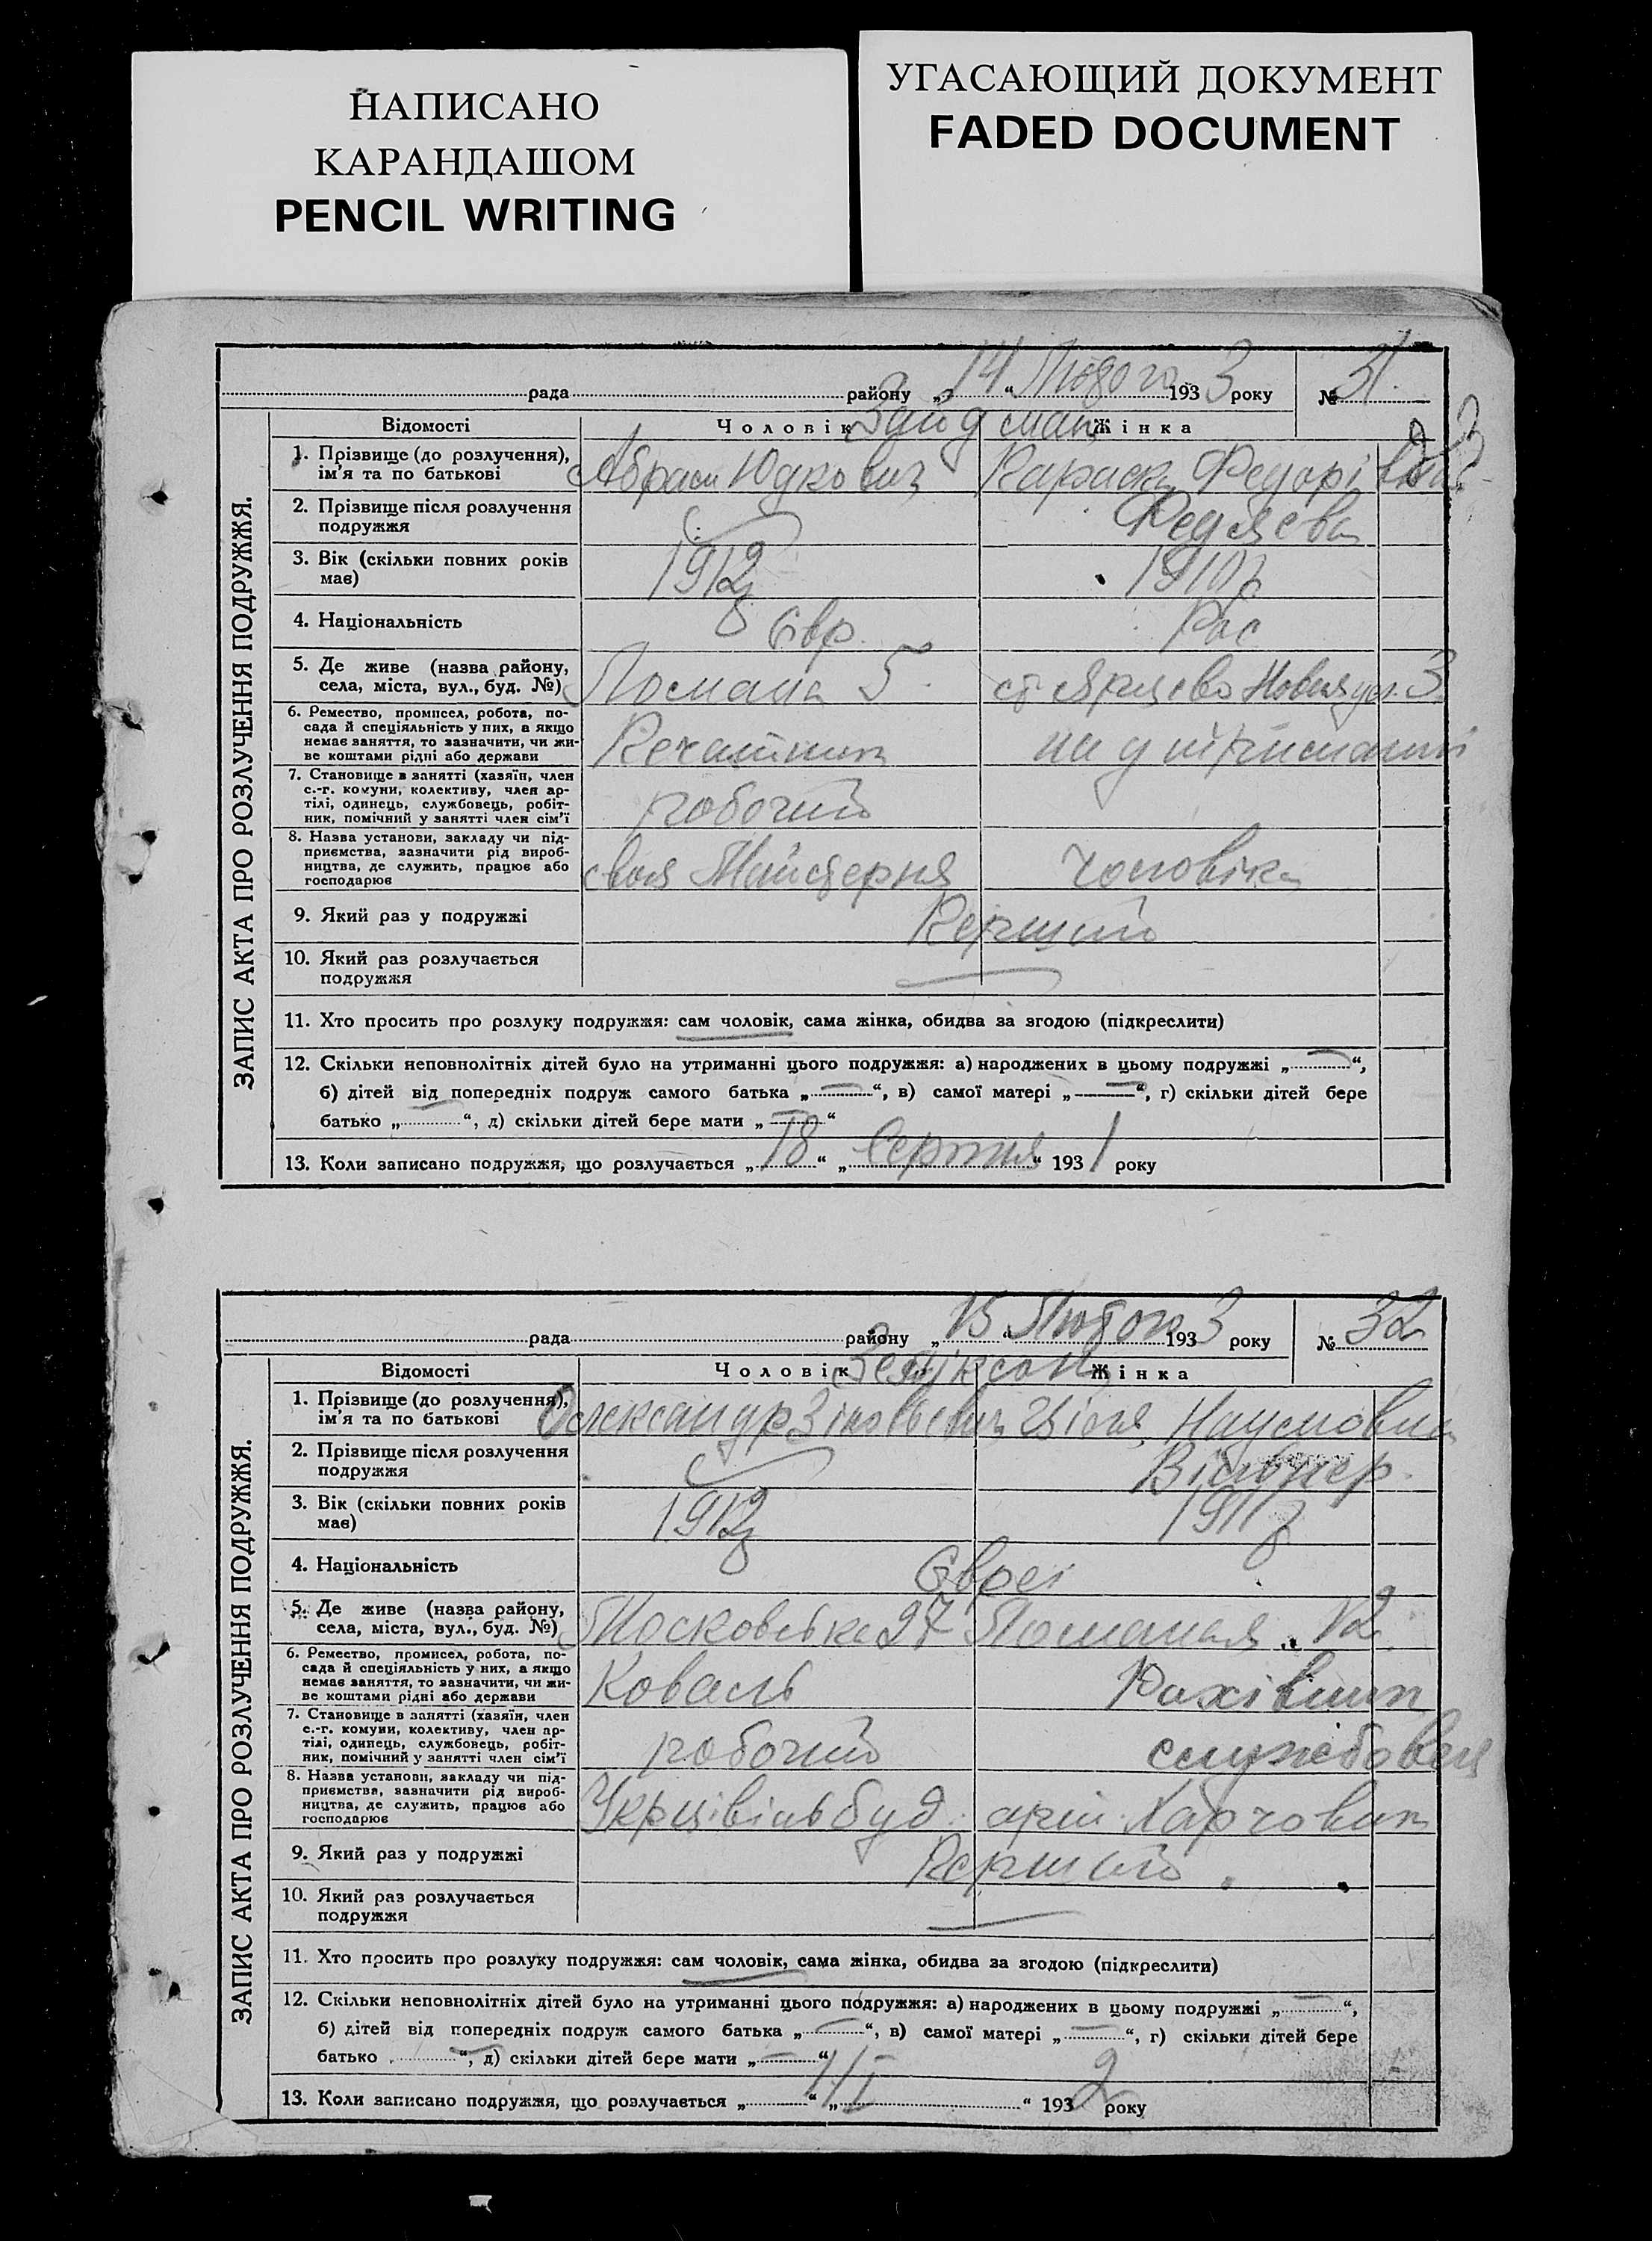 НАПИСАНО
КАРАНДАШОМ
PENCIL WRITING
УГАСАЮЩИЙ ДОКУМЕНТ
FADED DOCUMENT
ЗАПИС АКТА ПРО РОЗЛУЧЕННЯ ПОДРУЖЖЯ.
рада района „14“ Лютого 1933 року № 31.
Відомості Чоловік Зайдман Жінка
1. Прізвище (до розлучення), ім'я та по батькові Абрам Юдкович
2. Прізвище після розлучення подружжя
3. Вік (скільки повних років має) 1912 1910
4. Національність Євр. Рос
5. Де живе (назва району, села, міста, вул., буд. №) 5. ст Ярцево Новая ул. 3.
6. Ремество, промисел, робота, посада й спеціяльність у них, а якщо немає заняття, то зазначити, чи живе коштами рідні або держави на утриманні
7. Становище в занятті (хазяїн, член с.-г. комуни, колективу, член артілі, одинець, службовець, робітник, помічний у занятті член сім'ї робочий
8. Назва установи, закладу чи підприємства, зазначити рід виробництва, де служить, працює або господарює своя Майстерня чоловіка
9. Який раз у подружжі Перший
10. Який раз розлучається подружжя —
11. Хто просить про розлуку подружжя: сам чоловік, сама жінка, обидва за згодою (підкреслити)
12. Скільки неповнолітніх дітей було на утриманні цього подружжя: а) народжених в цьому подружжі „—“,
б) дітей від попередніх подруж самого батька „—“, в) самої матері „—“, г) скільки дітей бере
батько „—“, д) скільки дітей бере мати „—“
13. Коли записано подружжя, що розлучається „18“ „Серпня“ 1931 року
ЗАПИС АКТА ПРО РОЗЛУЧЕННЯ ПОДРУЖЖЯ.
рада району „15“ Лютого 1933 року № 32
Відомості Чоловік Жінка
1. Прізвище (до розлучення), ім'я та по батькові Олександр Зіновьевич Ціля Наумовна
2. Прізвище після розлучення подружжя
3. Вік (скільки повних років має) 1912 1911
4. Національність Євреї
5. Де живе (назва району, села, міста, вул., буд. №) Московська 27 12.
6. Ремество, промисел, робота, посада й спеціяльність у них, а якщо немає заняття, то зазначити, чи живе коштами рідні або держави Коваль Рахівник
7. Становище в занятті (хазяїн, член с.-г. комуни, колективу, член артілі, одинець, службовець, робітник, помічний у занятті член сім'ї робочий службовець
8. Назва установи, закладу чи підприємства, зазначити рід виробництва, де служить, працює або господарює Укрцівільбуд. арт. Харчовик
9. Який раз у подружжі Перший
10. Який раз розлучається подружжя —
11. Хто просить про розлуку подружжя: сам чоловік, сама жінка, обидва за згодою (підкреслити)
12. Скільки неповнолітніх дітей було на утриманні цього подружжя: а) народжених в цьому подружжі „—“,
б) дітей від попередніх подруж самого батька „—“, в) самої матері „—“, г) скільки дітей бере
батько „—“, д) скільки дітей бере мати „—“
13. Коли записано подружжя, що розлучається „ “ „ “ 1932 року